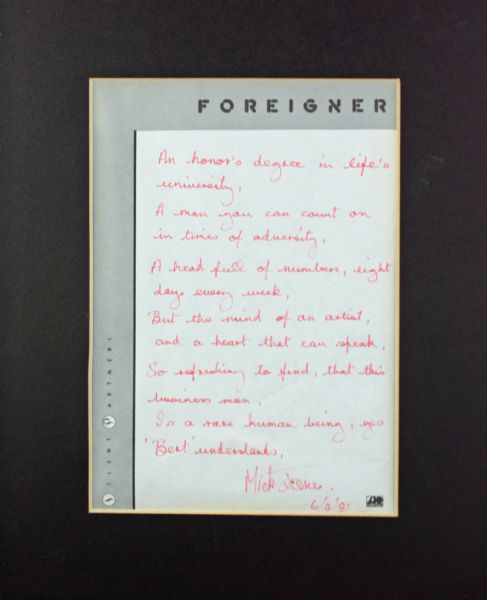 FOREIGNER
An honor's degree in life's
university,
A man you can count on
in times of adversity,
A head full of numbers, eight
days every week,
But the mind of an artist,
and a heart that can speak,
So refreshing to find, that this
business man,
Is a rare human being, yes
'Bert' understands,
Mick Jones.
SILENT PARTNERS